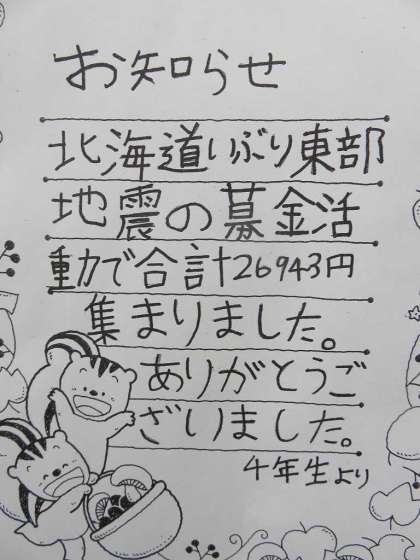 お知らせ
北海道いぶり東部
地震の募金活
動で合計26943円
集まりました。
ありがとうご
ざいました。
4年生より